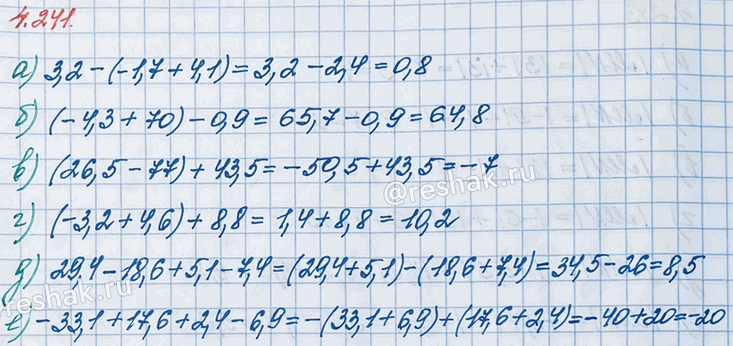 4.241.
а) 3,2 - (-1,7 + 4,1) = 3,2 - 2,4 = 0,8
б) (-4,3 + 70) - 0,9 = 65,7 - 0,9 = 64,8
в) (26,5 - 77) + 43,5 = -50,5 + 43,5 = -7
@reshak.ru
г) (-3,2 + 4,6) + 8,8 = 1,4 + 8,8 = 10,2
д) 29,4 - 18,6 + 5,1 - 7,4 = (29,4 + 5,1) - (18,6 + 7,4) = 34,5 - 26 = 8,5
reshak.ru
е) -33,1 + 17,6 + 2,4 - 6,9 = -(33,1 + 6,9) + (17,6 + 2,4) = -40 + 20 = -20